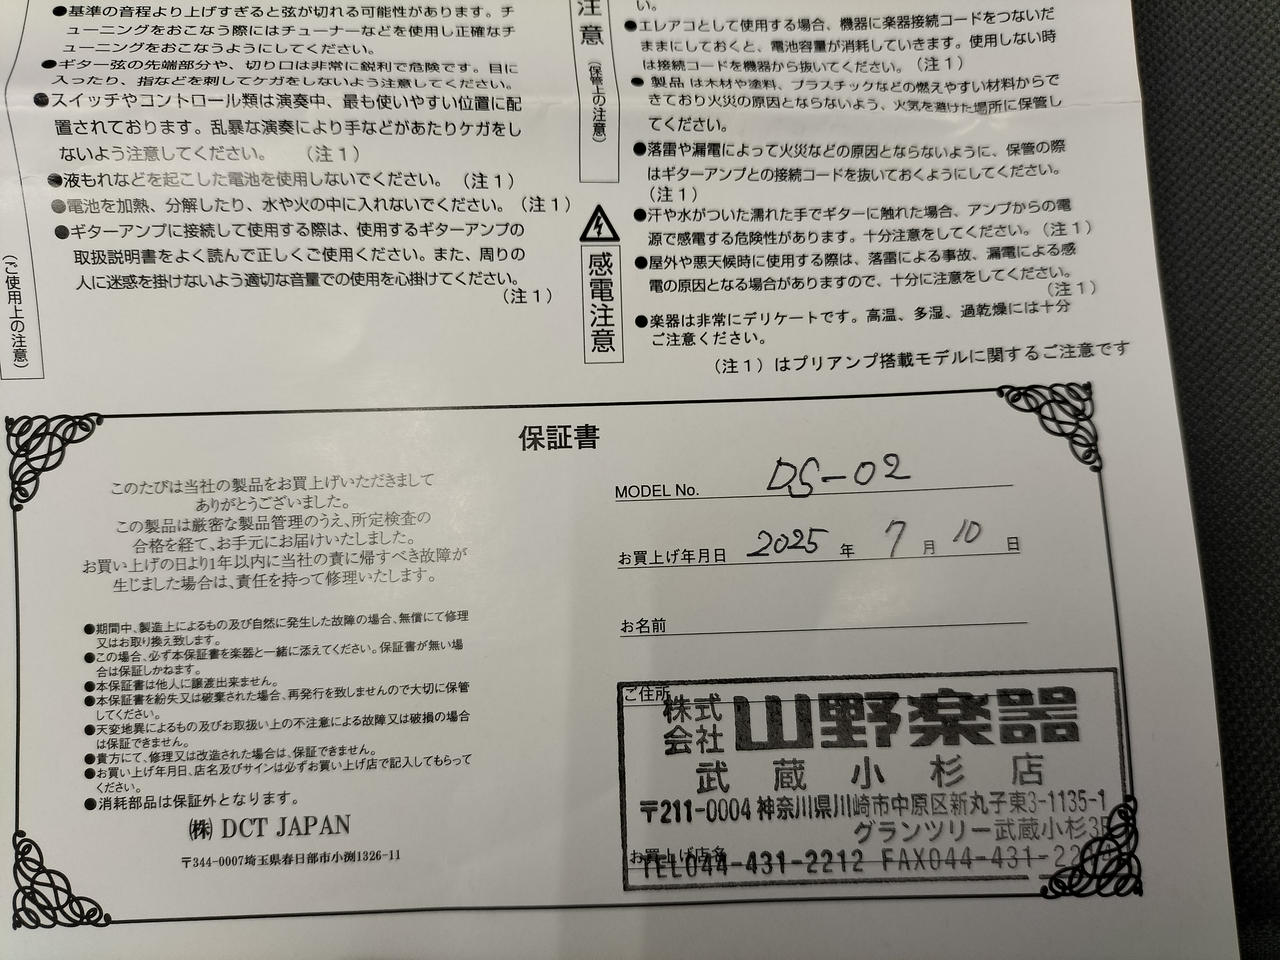 ●基準の音程より上げすぎると弦が切れる可能性があります。チ
ューニングをおこなう際にはチューナーなどを使用し正確なチ
ューニングをおこなうようにしてください。
●ギター弦の先端部分や、切り口は非常に鋭利で危険です。目に
入ったり、指などを刺してケガをしないよう注意してください。
●スイッチやコントロール類は演奏中、最も使いやすい位置に配
置されております。乱暴な演奏により手などがあたりケガをし
ないよう注意してください。 （注１）
●液もれなどを起こした電池を使用しないでください。（注１）
●電池を加熱、分解したり、水や火の中に入れないでください。（注１）
●ギターアンプに接続して使用する際は、使用するギターアンプの
取扱説明書をよく読んで正しくご使用ください。また、周りの
人に迷惑を掛けないよう適切な音量での使用を心掛けてください。
（注１）
（ご使用上の注意）
注意
（保管上の注意）
い。
●エレアコとして使用する場合、機器に楽器接続コードをつないだ
ままにしておくと、電池容量が消耗していきます。使用しない時
は接続コードを機器から抜いてください。（注１）
●製品は木材や塗料、プラスチックなどの燃えやすい材料からで
きており火災の原因とならないよう、火気を避けた場所に保管し
てください。
●落雷や漏電によって火災などの原因とならないように、保管の際
はギターアンプとの接続コードを抜いておくようにしてください。
（注１）
感電注意
●汗や水がついた濡れた手でギターに触れた場合、アンプからの電
源で感電する危険性があります。十分注意をしてください。（注１）
●屋外や悪天候時に使用する際は、落雷による事故、漏電による感
電の原因となる場合がありますので、十分に注意をしてください。
（注１）
●楽器は非常にデリケートです。高温、多湿、過乾燥には十分
ご注意ください。
（注１）はプリアンプ搭載モデルに関するご注意です
保証書
このたびは当社の製品をお買上げいただきまして
ありがとうございました。
この製品は厳密な製品管理のうえ、所定検査の
合格を経て、お手元にお届けいたしました。
お買い上げの日より1年以内に当社の責に帰すべき故障が
生じました場合は、責任を持って修理いたします。
●期間中、製造上によるもの及び自然に発生した故障の場合、無償にて修理
又はお取り換え致します。
●この場合、必ず本保証書を楽器と一緒に添えてください。保証書が無い場
合は保証しかねます。
●本保証書は他人に譲渡出来ません。
●本保証書を紛失又は破棄された場合、再発行を致しませんので大切に保管
してください。
●天変地異によるもの及びお取扱い上の不注意による故障又は破損の場合
は保証できません。
●貴方にて、修理又は改造された場合は、保証できません。
●お買い上げ年月日、店名及びサインは必ずお買い上げ店で記入してもらって
ください。
●消耗部品は保証外となります。
㈱ DCT JAPAN
〒344-0007埼玉県春日部市小渕1326-11
MODEL No. DS-02
お買上げ年月日 2025 年 7 月 10 日
お名前
ご住所
株式会社 山野楽器
武蔵小杉店
〒211-0004 神奈川県川崎市中原区新丸子東3-1135-1
グランツリー武蔵小杉3F
お買上げ店名
TEL044-431-2212 FAX044-431-22